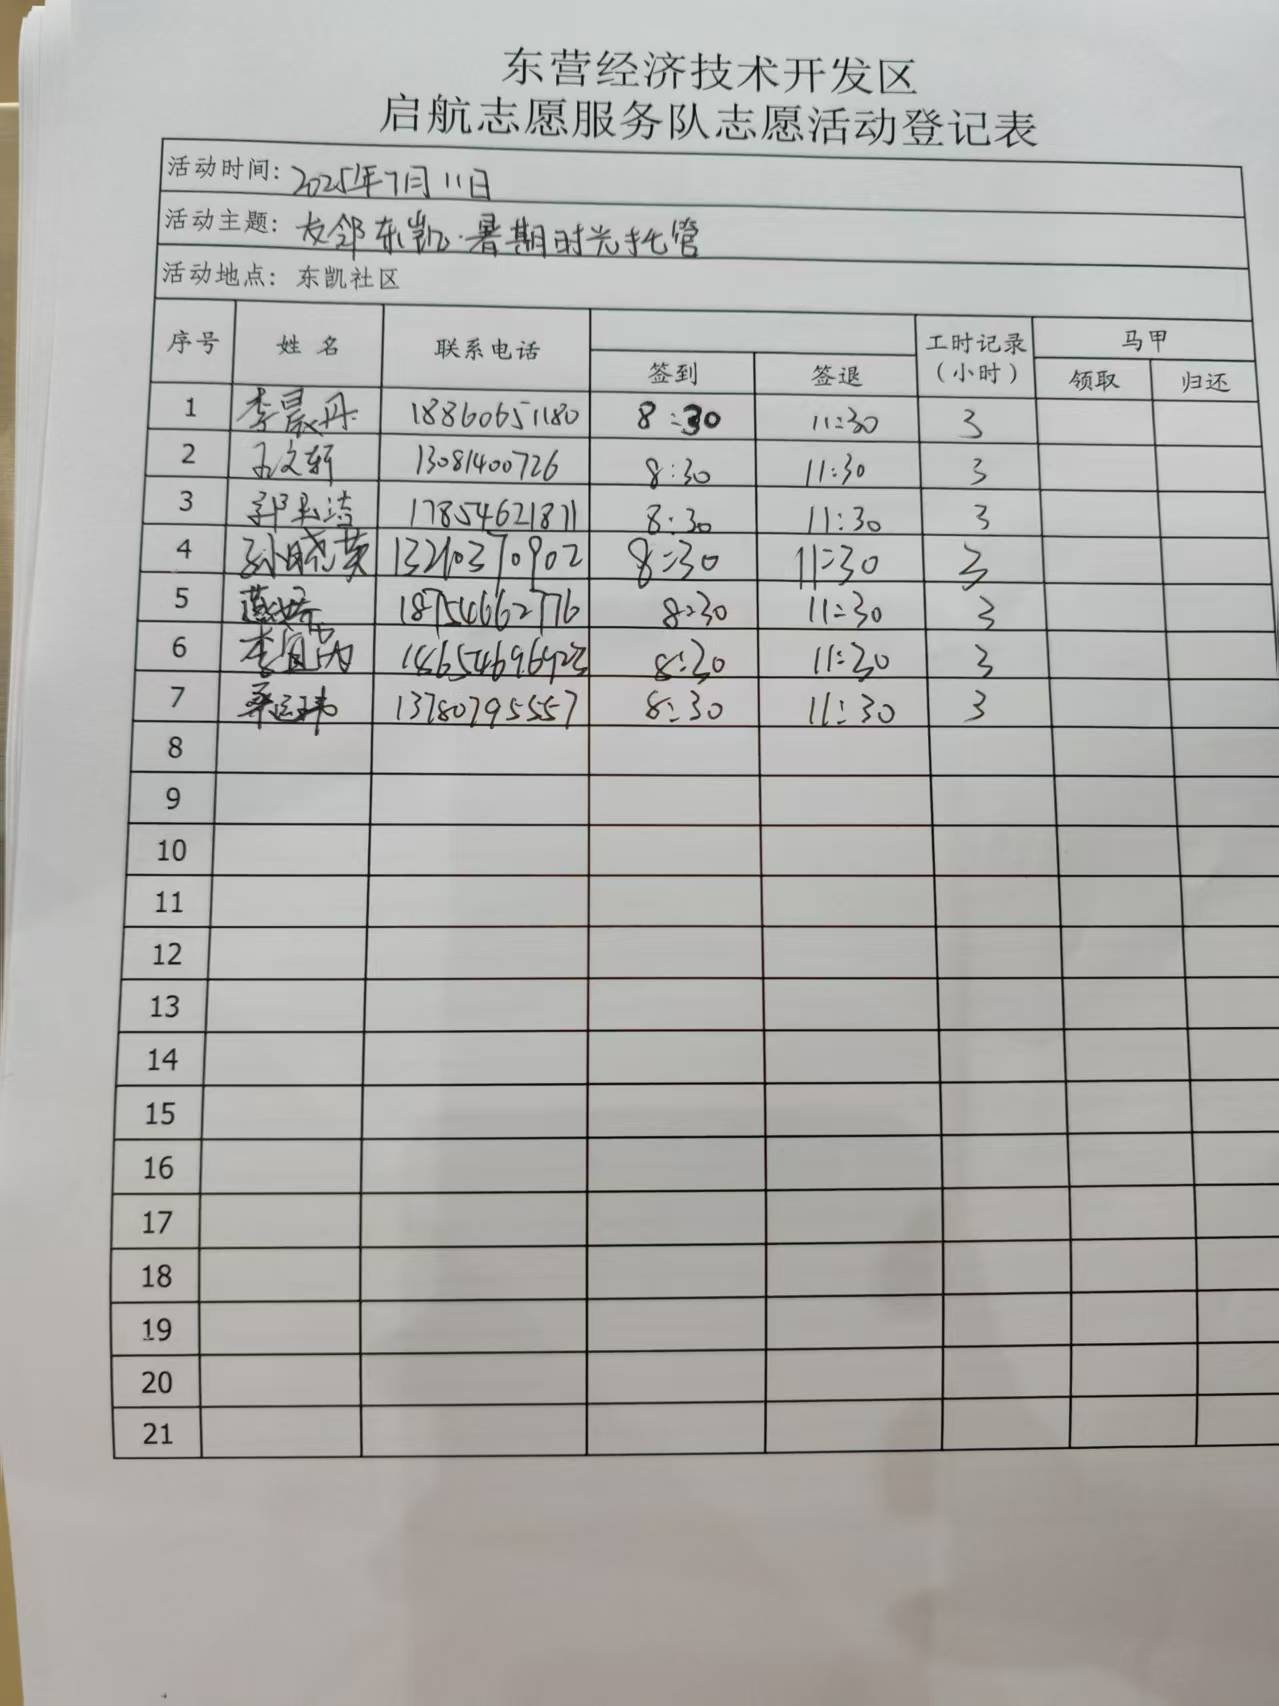 东营经济技术开发区
启航志愿服务队志愿活动登记表
活动时间: 2025年7月11日
活动主题: 友邻东凯·暑期时光托管
活动地点: 东凯社区
序号 姓名 联系电话 签到 签退 工时记录(小时) 马甲 领取 归还
1 李晨丹 18860651180 8:30 11:30 3
2 孟文轩 13081400726 8:30 11:30 3
3 郭 洁 17854621871 8:30 11:30 3
4 孙晓黄 13210370902 8:30 11:30 3
5 18754662776 8:30 11:30 3
6 李 8:30 11:30 3
7 桑 玮 13780795557 8:30 11:30 3
8
9
10
11
12
13
14
15
16
17
18
19
20
21